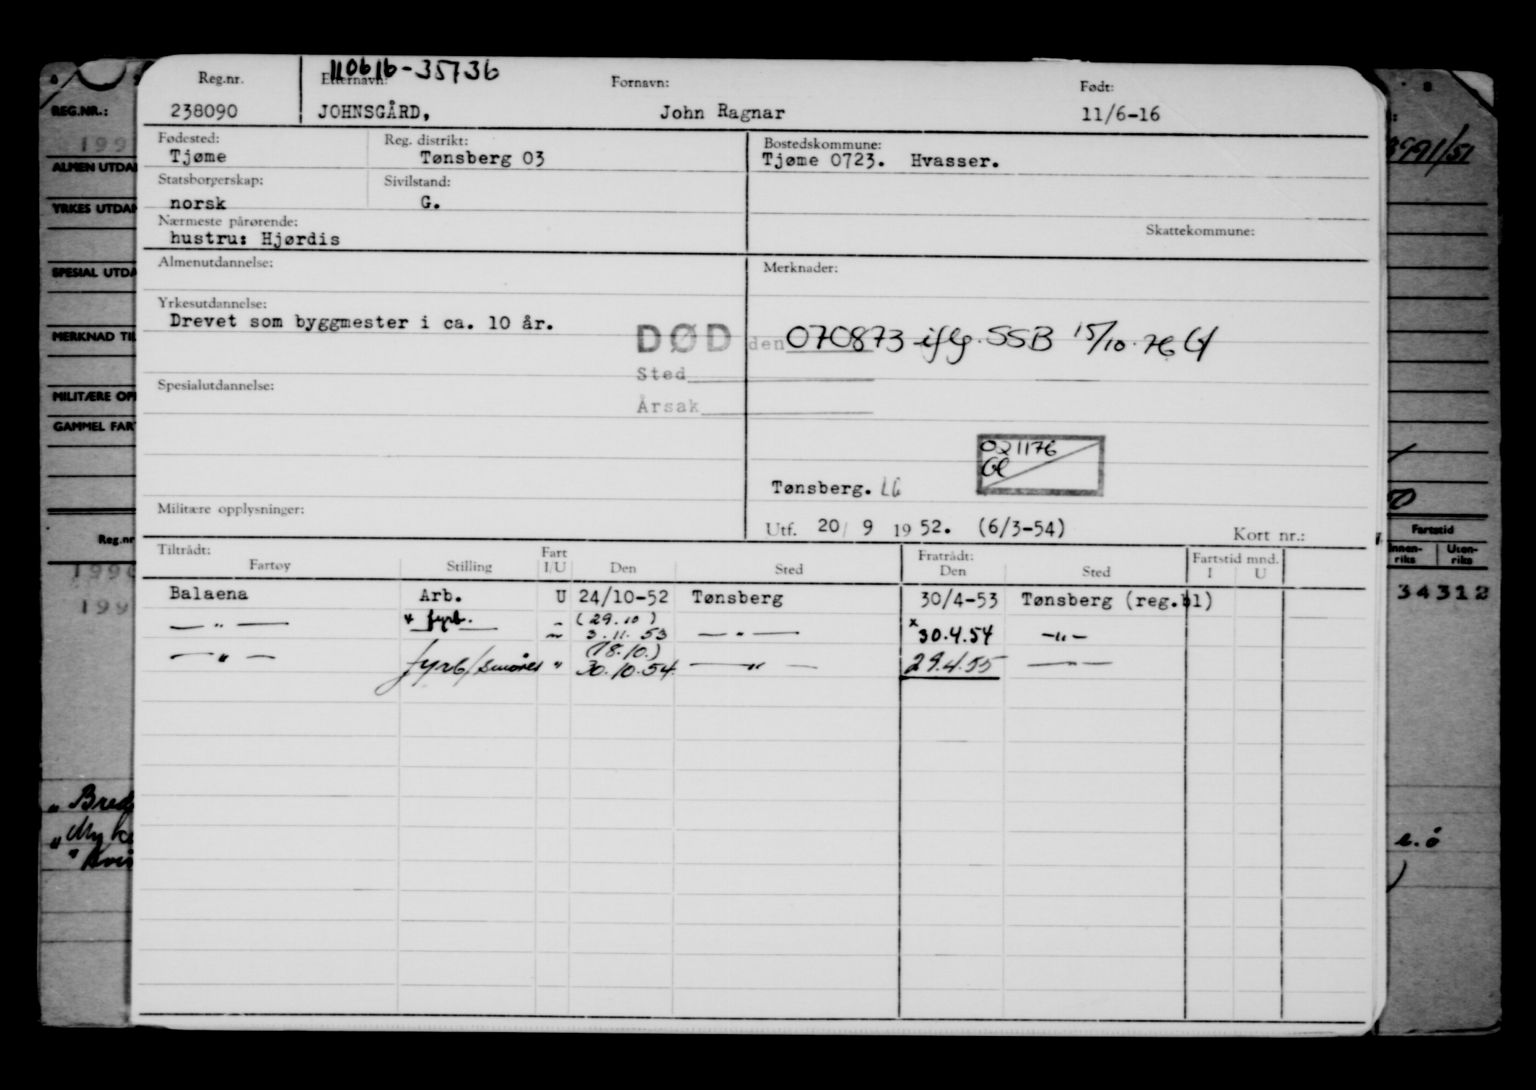 110616-35736
Reg.nr. Etternavn: Fornavn: Født:
238090 JOHNSGÅRD, John Ragnar 11/6-16
Fødested: Reg. distrikt: Bostedskommune:
Tjøme Tønsberg 03 Tjøme 0723. Hvasser.
Statsborgerskap: Sivilstand:
norsk G.
Nærmeste pårørende: Skattekommune:
hustru: Hjørdis
Almenutdannelse: Merknader:
Yrkesutdannelse:
Drevet som byggmester i ca. 10 år.
DØD den 070873 iflg. SSB 15/10.76
Sted
Spesialutdannelse:
Årsak
021176
Tønsberg. LG
Militære opplysninger:
Utf. 20/ 9 19 52. (6/3-54) Kort nr.:
Tiltrådt: Fart Fratrådt: Fartstid mnd.
Fartøy Stilling I/U Den Sted Den Sted I U
Balaena Arb. U 24/10-52 Tønsberg 30/4-53 Tønsberg (reg.bl)
— " — x fyrb. " (29.10) 3.11.53 — " — x 30.4.54 — " —
— " — fyrb/smører " (18.10.) 30.10.54 — " — 29.4.55 — —
REG.NR.:
199
ALMEN UTDA
YRKES UTDAN
SPESIAL UTDA
MERKNAD TIL
MILITÆRE OP
GAMMEL FAR
Reg.nr
199
199
" Bred
" My
" Kvi
3991/51
Fartstid
Innen-riks Uten-riks
34312